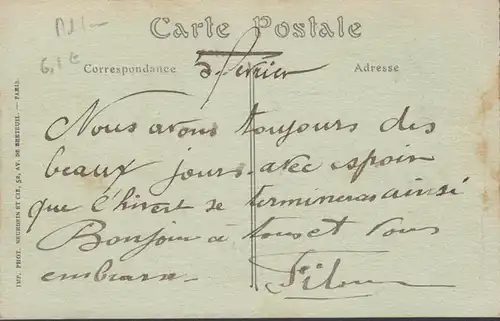 Carte Postale
Correspondance
Adresse
5 Février
Nous avons toujours des
beaux jours avec espoir
que l'hivert se termineras ainsi
Bonjour à tous et vous
embrasse
IMP. PHOT. NEURDEIN ET CIE, 52, AV. DE BRETEUIL. — PARIS.